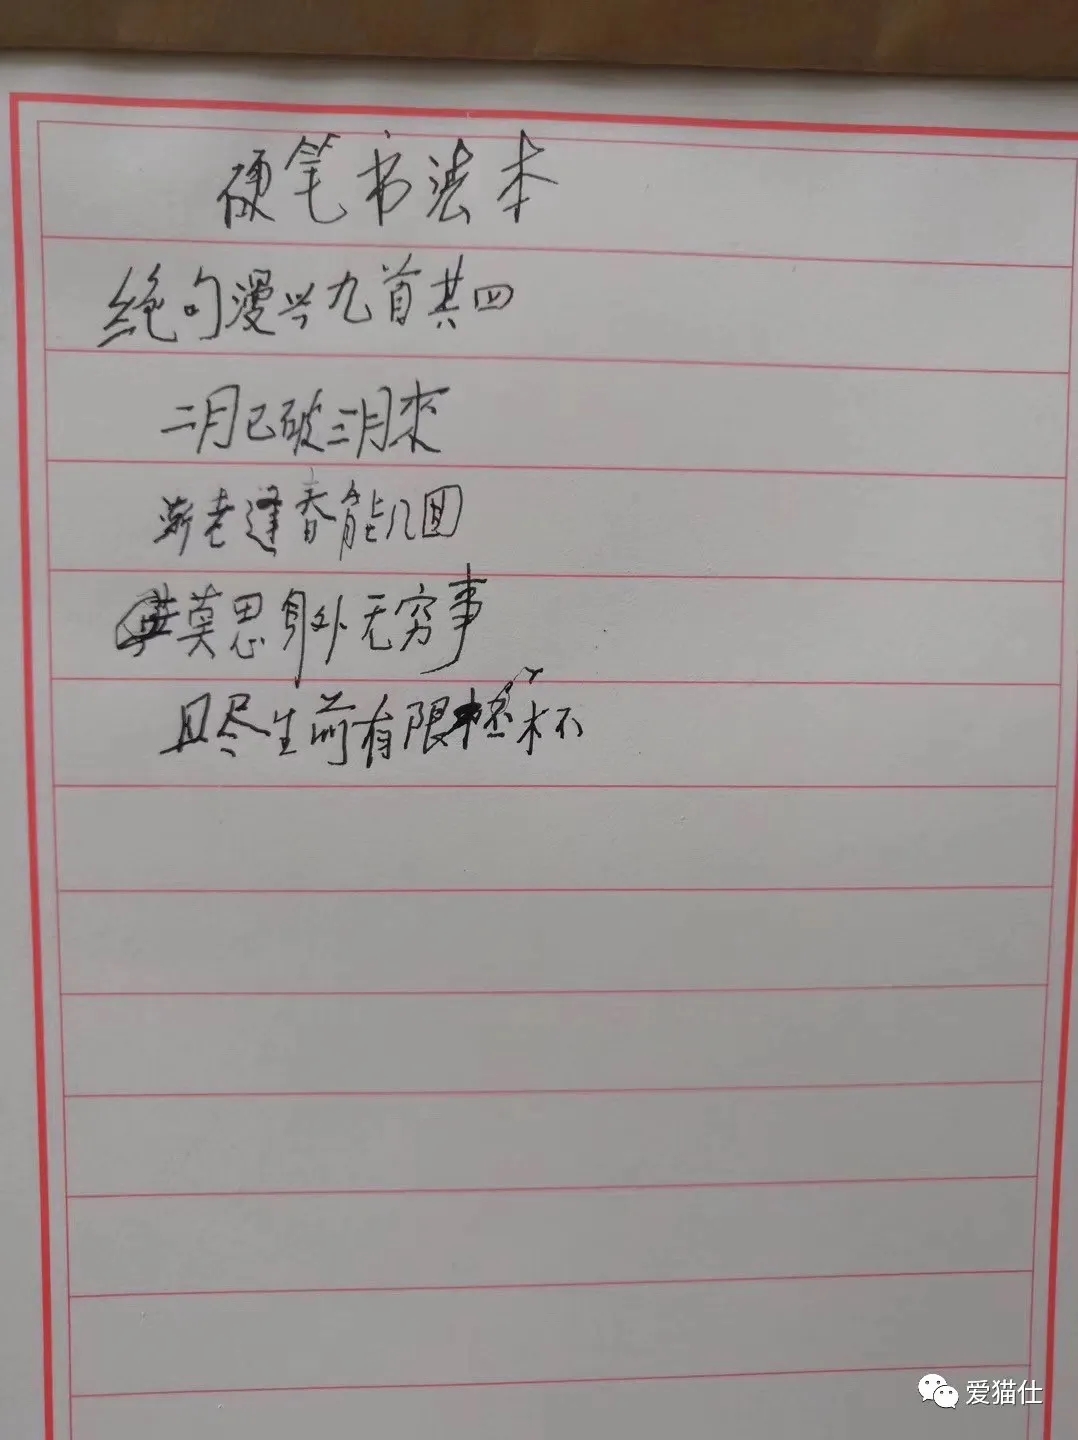 硬笔书法本
绝句漫兴九首其四
二月已破三月来
渐老逢春能几回
莫思身外无穷事
且尽生前有限杯
爱猫仕